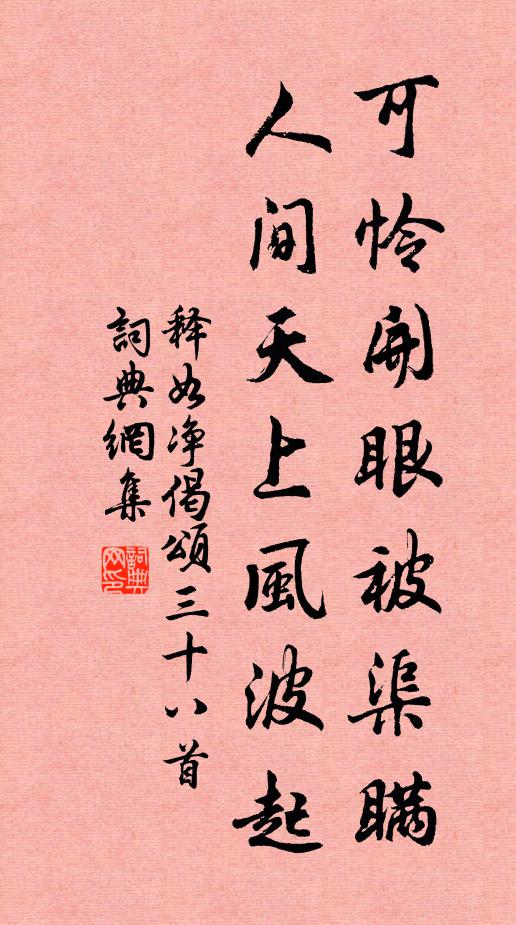 可怜開眼被渠瞞
人間天上風波起
释如净偈頌三十八首
詞典網集
詞典网印